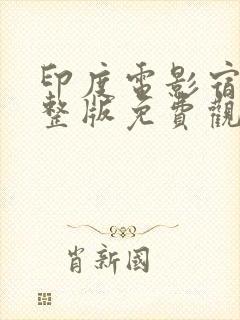 印度電影宿
整版免費觀
肖新國